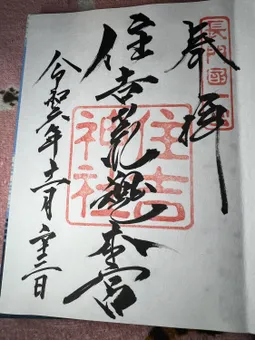 長門國一宮
奉拝
住吉荒魂本宮
住吉神社
令和六年十一月二十三日